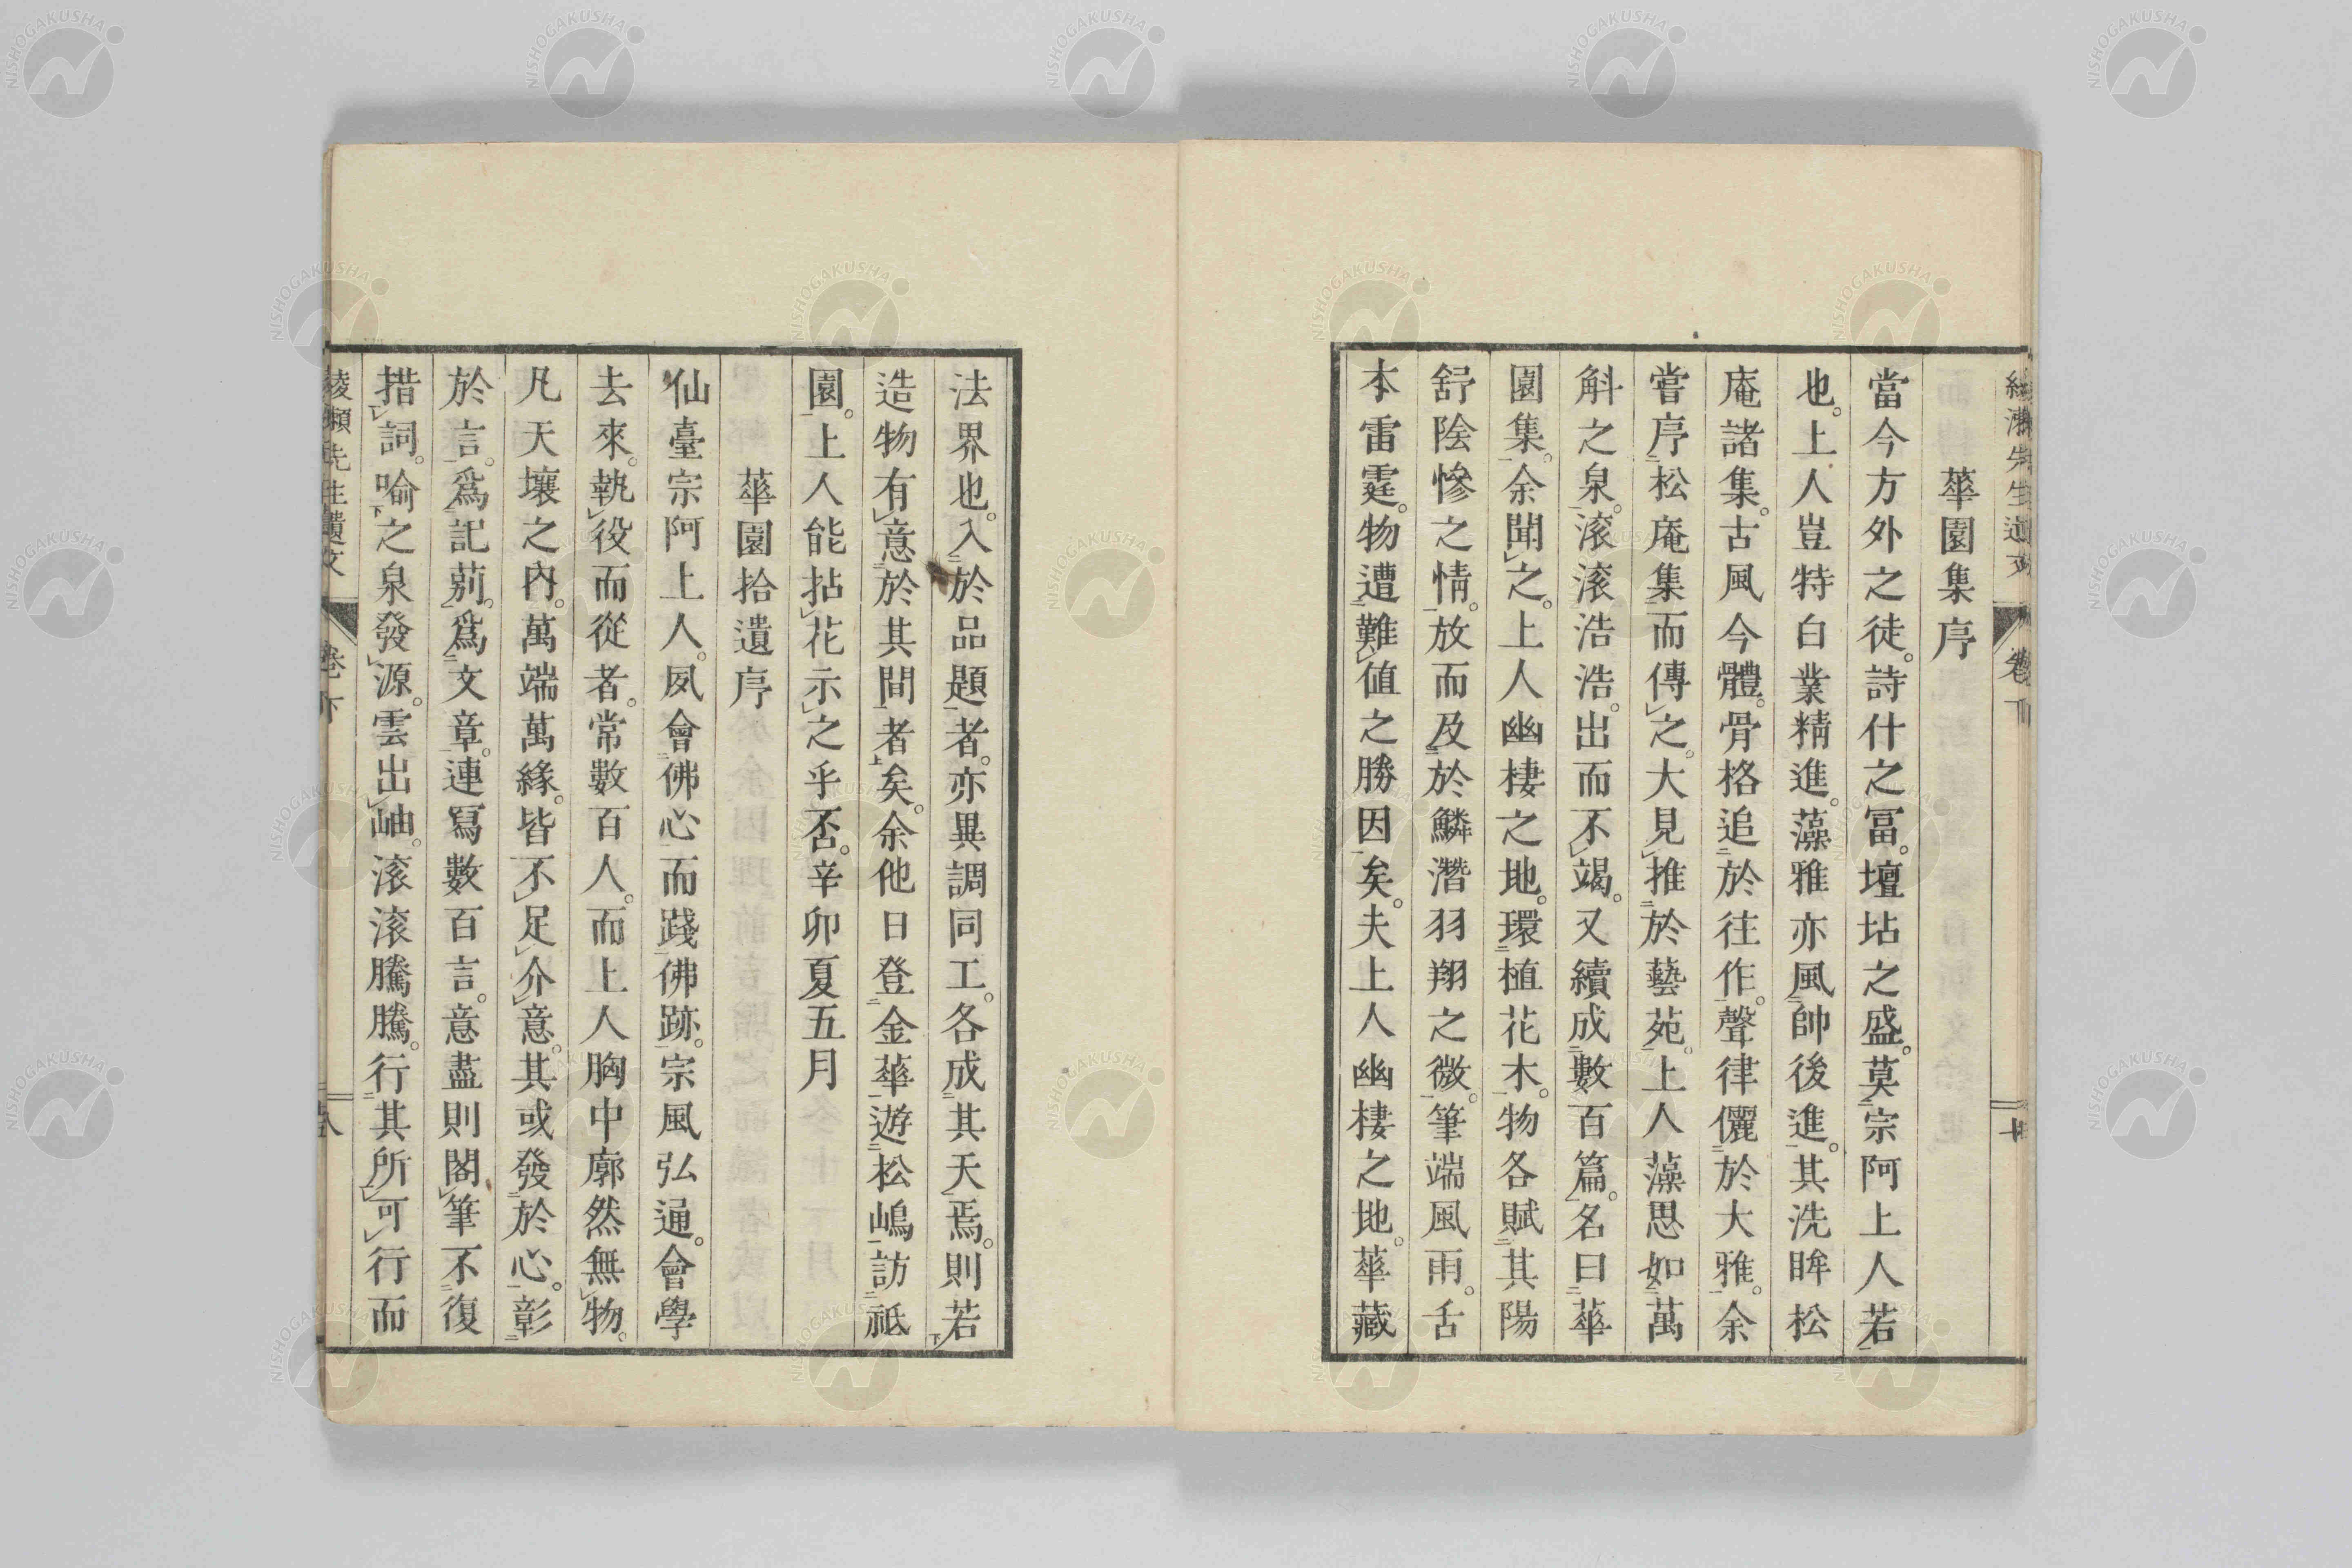 華園集序
當今方外之徒。詩什之冨。壇坫之盛。莫宗阿上人若
也。上人豈特白業精進。藻雅亦風帥後進。其洗眸松
庵諸集。古風今體。骨格追於往作。聲律儷於大雅。余
嘗序松庵集而傳之。大見推於藝苑。上人藻思如萬
斛之泉。滚滚浩浩。出而不竭。又續成數百篇。名曰華
園集。余聞之。上人幽棲之地。環植花木。物各賦其陽
舒陰慘之情。放而及於鱗潛羽翔之微。筆端風雨。舌
本雷霆。物遭難値之勝因矣。夫上人幽棲之地。華藏
法界也。入於品題者。亦異調同工。各成其天焉。則若
造物有意於其間者矣。余他日登金華遊松嶋訪祇
園。上人能拈花示之乎否。辛卯夏五月
華園拾遺序
仙臺宗阿上人。夙會佛心而踐佛跡。宗風弘通。會學
去來。執役而從者。常數百人。而上人胸中廓然無物。
凡天壤之內。萬端萬緣。皆不足介意。其或發於心。彰
於言。爲記莂。爲文章。連寫數百言。意盡則閣筆不復
措詞。喻之泉發源。雲出岫。滚滚騰騰。行其所可行而
綾瀬先生遺文 卷下